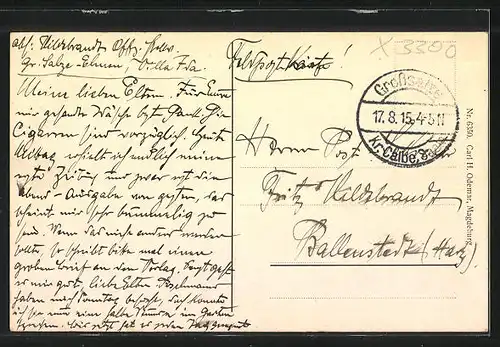 Abs: Hildebrandt Offz. Stellv.
Gr. Salze-Elmen, Villa Ida
Meine lieben Eltern. Für Eure
mir gesandte Wäsche best. Dank. Die
Cigarren sind vorzüglich. Heute
Mittag erhielt ich endlich meine
erste Zeitung und zwar ist die
Abend-Ausgabe von gestern, das
scheint mir sehr bummelig zu
sein. Wenn das nicht anders werden
sollte, so schreibt bitte mal einen
groben Brief an den Verlag. Sonst geht
es mir gut, liebe Eltern.
haben mich Sonntag besucht, doch konnte
ich sie nur eine halbe Stunde im Garten
sprechen. Bis jetzt hat es jeden Tag
Feldpostkarte!
X3300
Großsalze
17.8.15.4-5N
Kr. Calbe, Saale
Herrn Post
Fritz Hildebrandt
Ballenstedt (Harz).
Nr. 6350. Carl H. Odemar, Magdeburg.